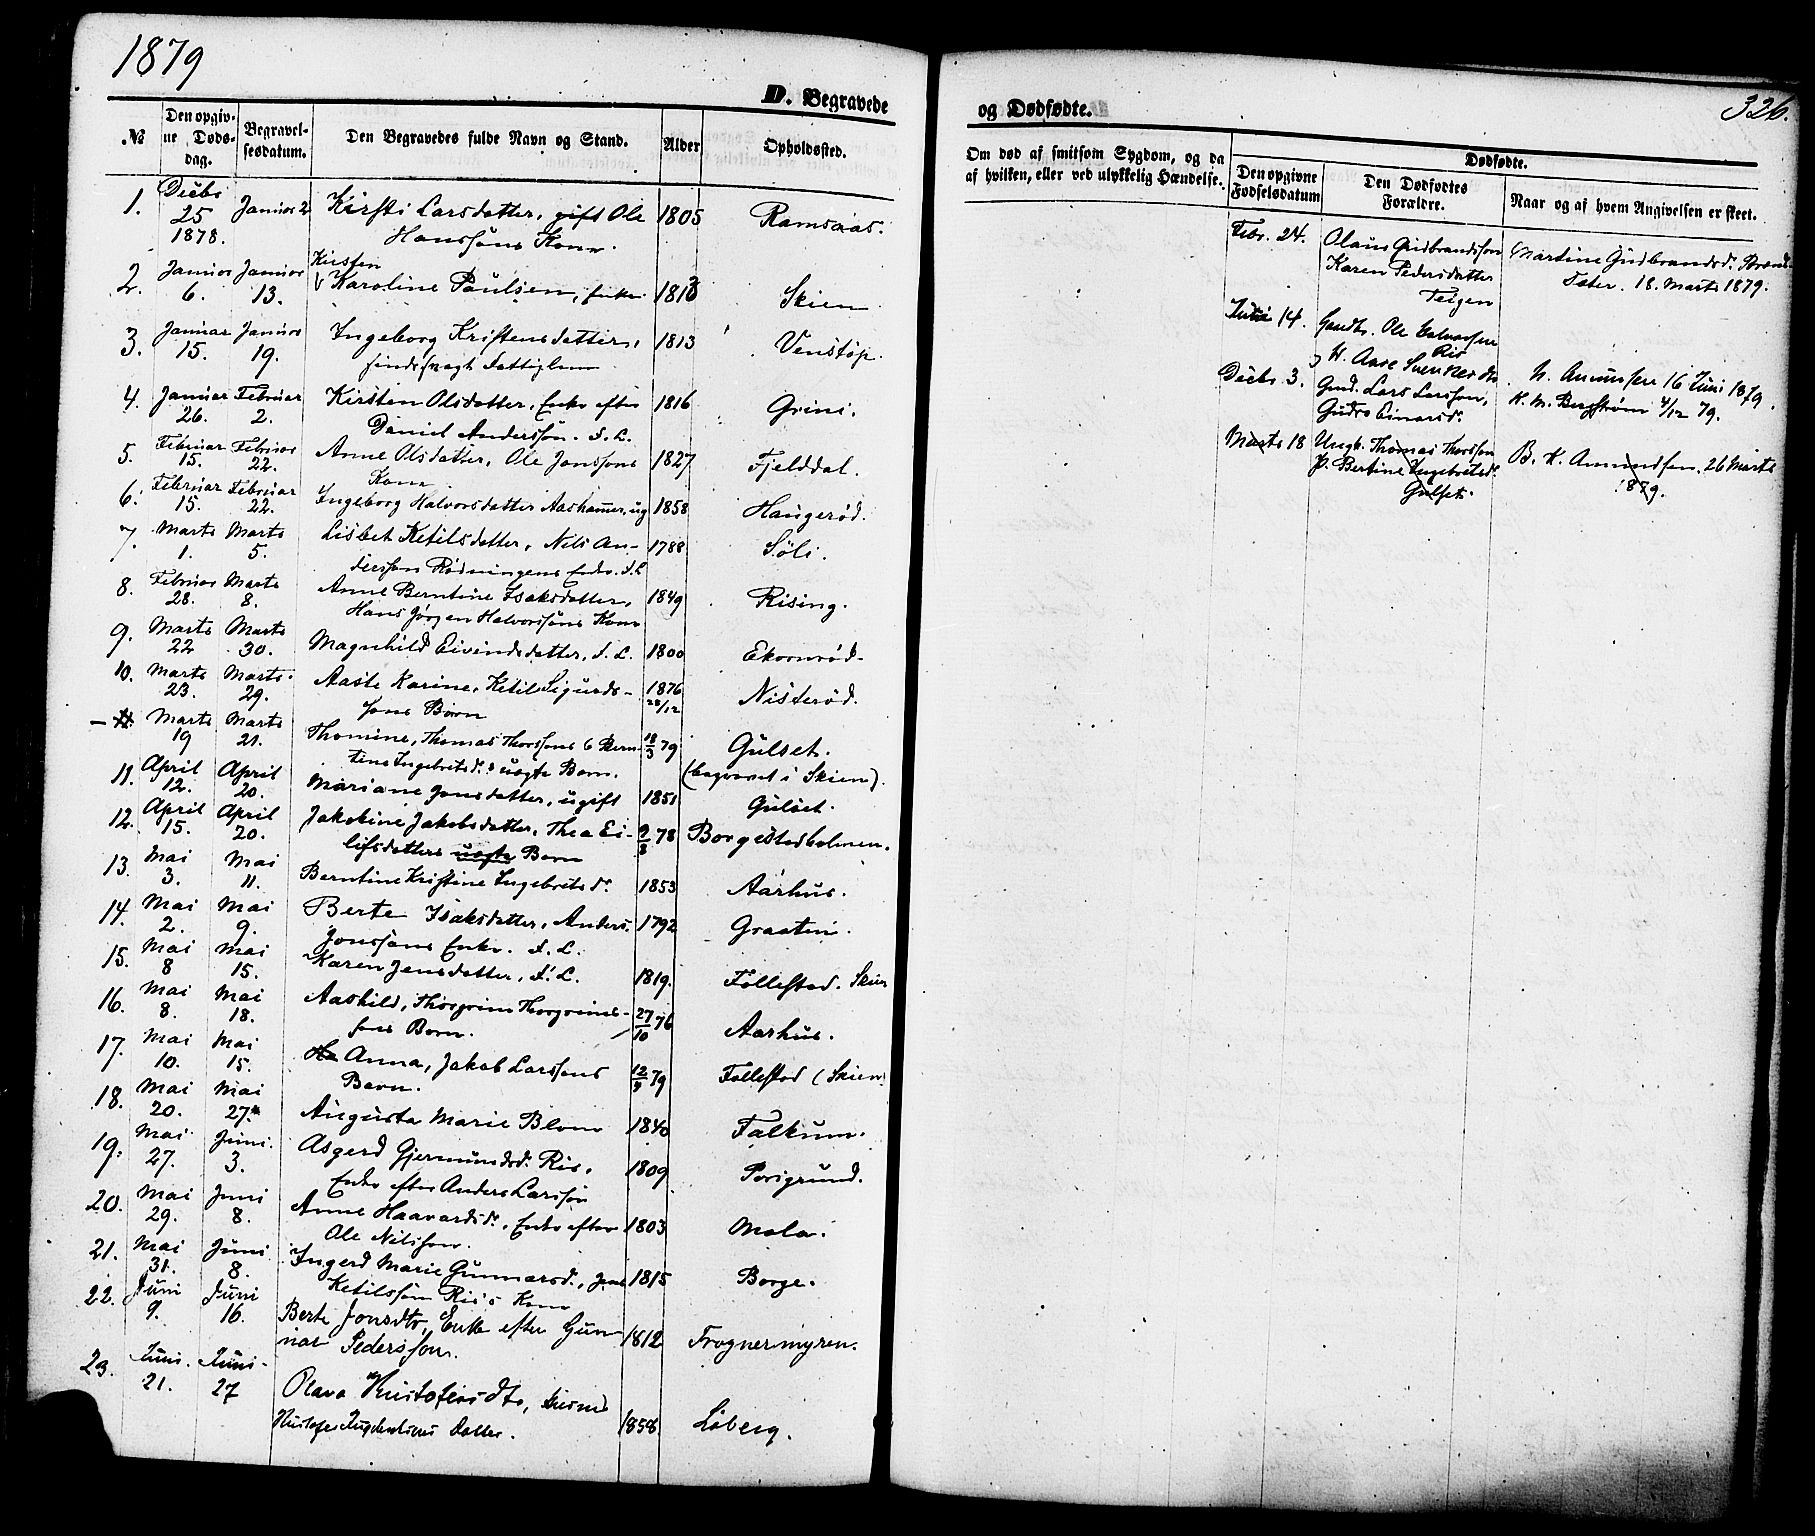 1879
D. Begravede
No
Den opgivne Dødsdag.
Begravelsesdatum.
Den Begravedes fulde Navn og Stand.
Alder
Opholdssted.
1. Decbr 25 1878. Januar 2 Kirsti Larsdatter, gift Ole 1805 Ramsaas.
Hanssøns Kone.
Kirsten
2. Januar 6. Januar 13. Karoline Paulsen, Enke 1813 Skien
3. Januar 15. Januar 19. Ingeborg Kristensdatter, 1813 Venstøp.
sindssvagt Fattiglem
4. Januar 26. Februar 2. Kirsten Olsdatter, Enke efter 1816 Grini.
Daniel Anderssøn. F. L.
5. Februar 15. Februar 22. Anne Olsdatter, Ole Jonssøns 1827 Fjelddal.
Kone
6. Februar 15. Februar 22. Ingeborg Halvorsdatter Aashammer, ug 1858 Haugerød.
7. Marts 1. Marts 5. Lisbet Ketilsdatter, Nils An- 1788 Søli.
derssøn Rødningens Enke. F. L
8. Februar 28. Marts 8. Anne Berntine Isaksdatter, 1849 Rising.
Hans Jørgen Halvorssøns Kone
9. Marts 22 Marts 30. Magnhild Eivindsdatter, F. L. 1800 Ekornrød.
10. Marts 23. Marts 29. Aaste Karine, Ketil Sigurds- 1876 28/12 Nisterød.
søns Barn
Marts 19 Marts 21. Thomine, Thomas Thorssøns & Bern- 18/3 79 Gulset.
tine Ingebretsd.s uægte Barn. (begravet i Skien).
11. April 12. April 20. Mariane Jonsdatter, ugift 1851 Gulset.
12. April 15. April 20. Jakobine Jakobsdatter, Thea Ei- 9/8 78 Borgestadholmen.
lifsdatters uægte Barn
13. Mai 3. Mai 11. Berntine Kristine Ingebretsd. 1853 Aarhus.
14. Mai 2. Mai 9. Berte Isaksdatter, Anders 1792 Graaten.
Jonssøns Enke. F. L.
15. Mai 8 Mai 15. Karen Jensdatter, F. L. 1819. Follestad. Skien
16. Mai 8. Mai 18. Aashild, Thorgrim Thorgrims- 27/10 76 Aarhus.
søns Barn.
17. Mai 10. Mai 15. Anna, Jakob Larssøns 12/3 79 Follestad (Skien)
Barn.
18. Mai 20. Mai 27. Augusta Marie Blom 1840 Falkum.
19. Mai 27. Juni 3. Asgerd Gjermundsd. Ris, 1809 Porsgrund.
Enke efter Anders Larssøn
20. Mai 29. Juni 8. Anne Haavardsd., Enke efter 1803 Mæla.
Ole Nilssøn.
21. Mai 31. Juni 8. Ingerd Marie Gunnarsd., Jens 1815 Borge.
Ketilssøn Ris's Kone
22. Juni 9. Juni 16. Berte Jonsdtr, Enke efter Gun- 1812 Frognermyren.
nar Pederssøn.
23. Juni 21. Juni 27 Olava Kristofersdtr,
Kristofer Datter. 1858. Løberg.
og Dødfødte.
326.
Om død af smitsom Sygdom, og da
af hvilken, eller ved ulykkelig Hændelse.
Dødfødte.
Den opgivne Fødselsdatum
Den Dødfødtes Forældre.
Naar og af hvem Angivelsen er skeet.
Febr. 24. Olaus Gudbrandssøn Martine Gudbrandsd.
Karen Pedersdatter 18. Marts 1879.
Teigen
Juni 14. Gaardbr. Ole Halvorssen
Ris
H. Aase N. Amundsen 16 Juni 1879.
Decbr. 3. Gmd. Lars Larssøn, K. M. Bergstrøm 4/12 79.
Gudro Einarsd.
Marts 18 Ungk. Thomas Thorssøn B. K. Amundsen, 26 Marts
P. Bertine Ingebretsd. 1879.
Gulset.